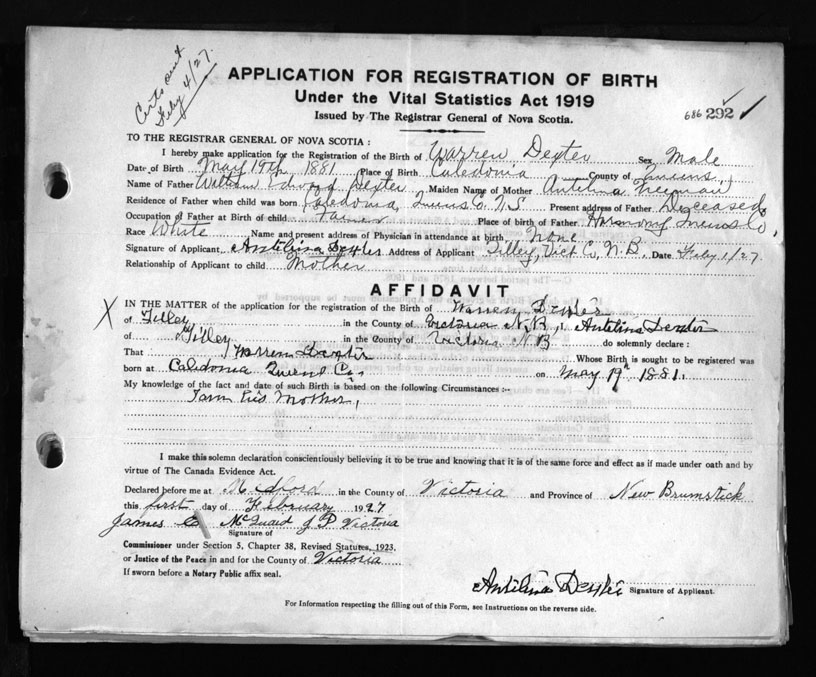 Certs sent
Feby 4/27.
APPLICATION FOR REGISTRATION OF BIRTH
Under the Vital Statistics Act 1919
Issued by The Registrar General of Nova Scotia.
686 292
TO THE REGISTRAR GENERAL OF NOVA SCOTIA :
I hereby make application for the Registration of the Birth of Warren Dexter Sex Male
Date of Birth May 19th, 1881 Place of Birth Caledonia County of Queens
Name of Father William Edward Dexter Maiden Name of Mother Antelina Freeman
Residence of Father when child was born Caledonia, Queens Co. N.S Present address of Father Deceased
Occupation of Father at Birth of child Farmer Place of birth of Father Harmony Queens Co,
Race White Name and present address of Physician in attendance at birth None
Signature of Applicant Antelina Dexter Address of Applicant Tilley, Vict Co, N.B. Date Feby 1/27.
Relationship of Applicant to child Mother
AFFIDAVIT
X IN THE MATTER of the application for the registration of the Birth of Warren Dexter
of Tilley in the County of Victoria N.B, I Antelina Dexter
of Tilley in the County of Victoria N B do solemnly declare :
That Warren Dexter Whose Birth is sought to be registered was
born at Caledonia Queens Co, on May 19th 1881.
My knowledge of the fact and date of such Birth is based on the following Circumstances :-
I am his Mother,
I make this solemn declaration conscientiously believing it to be true and knowing that it is of the same force and effect as if made under oath and by
virtue of The Canada Evidence Act.
Declared before me at in the County of Victoria and Province of New Brunstick
this first day of February 1927
James McQuaid J P Victoria
Signature of
Commissioner under Section 5, Chapter 38, Revised Statutes, 1923.
or Justice of the Peace in and for the County of Victoria
If sworn before a Notary Public affix seal.
Antelina Dexter Signature of Applicant.
For Information respecting the filling out of this Form, see Instructions on the reverse side.